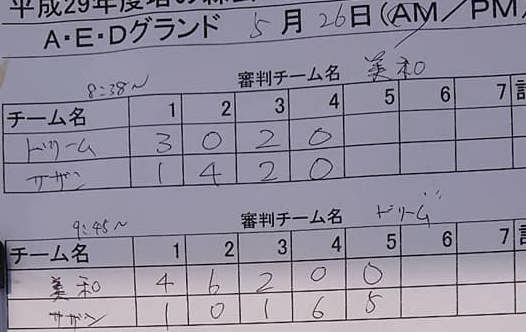 平成29年度塔の森
A・E・Dグランド 5月26日(AM/PM
8:38~ 審判チーム名 美和
チーム名 1 2 3 4 5 6 7 計
ドリーム 3 0 2 0
サザン 1 4 2 0
9:45~ 審判チーム名 ドリーム
チーム名 1 2 3 4 5 6 7 計
美和 4 6 2 0 0
サザン 1 0 1 6 5